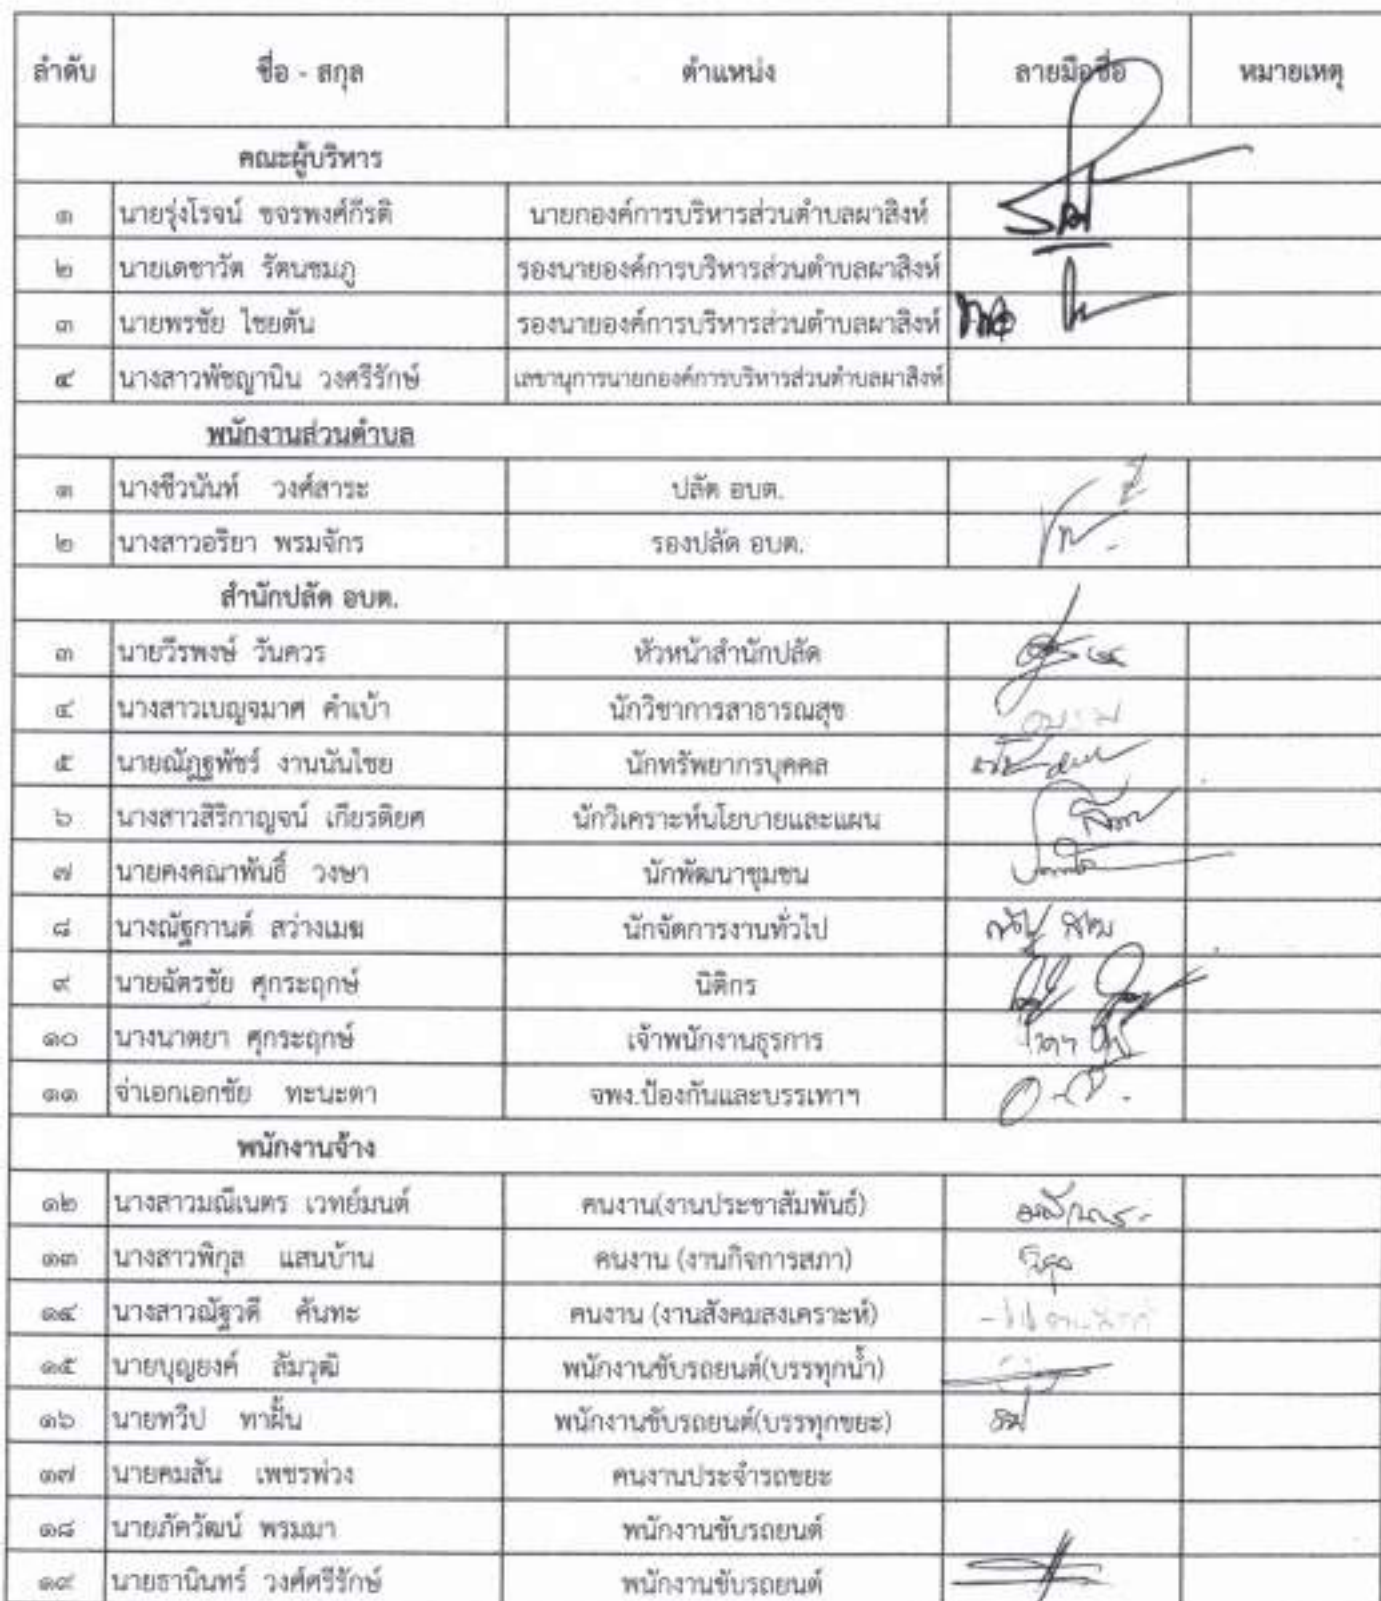 ลำดับ ชื่อ - สกุล ตำแหน่ง ลายมือชื่อ หมายเหตุ
คณะผู้บริหาร
๑ นายรุ่งโรจน์ ขจรพงศ์กีรติ นายกองค์การบริหารส่วนตำบลผาสิงห์
๒ นายเดชาวัต รัตนชมภู รองนายองค์การบริหารส่วนตำบลผาสิงห์
๓ นายพรชัย ไชยตัน รองนายองค์การบริหารส่วนตำบลผาสิงห์
๔ นางสาวพัชญานิน วงศรีรักษ์ เลขานุการนายกองค์การบริหารส่วนตำบลผาสิงห์
พนักงานส่วนตำบล
๑ นางชีวนันท์ วงศ์สาระ ปลัด อบต.
๒ นางสาวอริยา พรมจักร รองปลัด อบต.
สำนักปลัด อบต.
๓ นายวีรพงษ์ วันควร หัวหน้าสำนักปลัด
๔ นางสาวเบญจมาศ คำเบ้า นักวิชาการสาธารณสุข
๕ นายณัฏฐพัชร์ งานนันไชย นักทรัพยากรบุคคล
๖ นางสาวสิริกาญจน์ เกียรติยศ นักวิเคราะห์นโยบายและแผน
๗ นายคงคณาพันธิ์ วงษา นักพัฒนาชุมชน
๘ นางณัฐกานต์ สว่างเมฆ นักจัดการงานทั่วไป
๙ นายฉัตรชัย ศุกระฤกษ์ นิติกร
๑๐ นางนาตยา ศุกระฤกษ์ เจ้าพนักงานธุรการ
๑๑ จ่าเอกเอกชัย ทะนะตา จพง.ป้องกันและบรรเทาฯ
พนักงานจ้าง
๑๒ นางสาวมณีเนตร เวทย์มนต์ คนงาน(งานประชาสัมพันธ์)
๑๓ นางสาวพิกุล แสนบ้าน คนงาน (งานกิจการสภา)
๑๔ นางสาวณัฐวดี คันทะ คนงาน (งานสังคมสงเคราะห์)
๑๕ นายบุญยงค์ ลัมวุฒิ พนักงานขับรถยนต์(บรรทุกน้ำ)
๑๖ นายทวีป ทาฝั้น พนักงานขับรถยนต์(บรรทุกขยะ)
๑๗ นายคมสัน เพชรพ่วง คนงานประจำรถขยะ
๑๘ นายภัควัฒน์ พรมมา พนักงานขับรถยนต์
๑๙ นายธานินทร์ วงศ์ศรีรักษ์ พนักงานขับรถยนต์